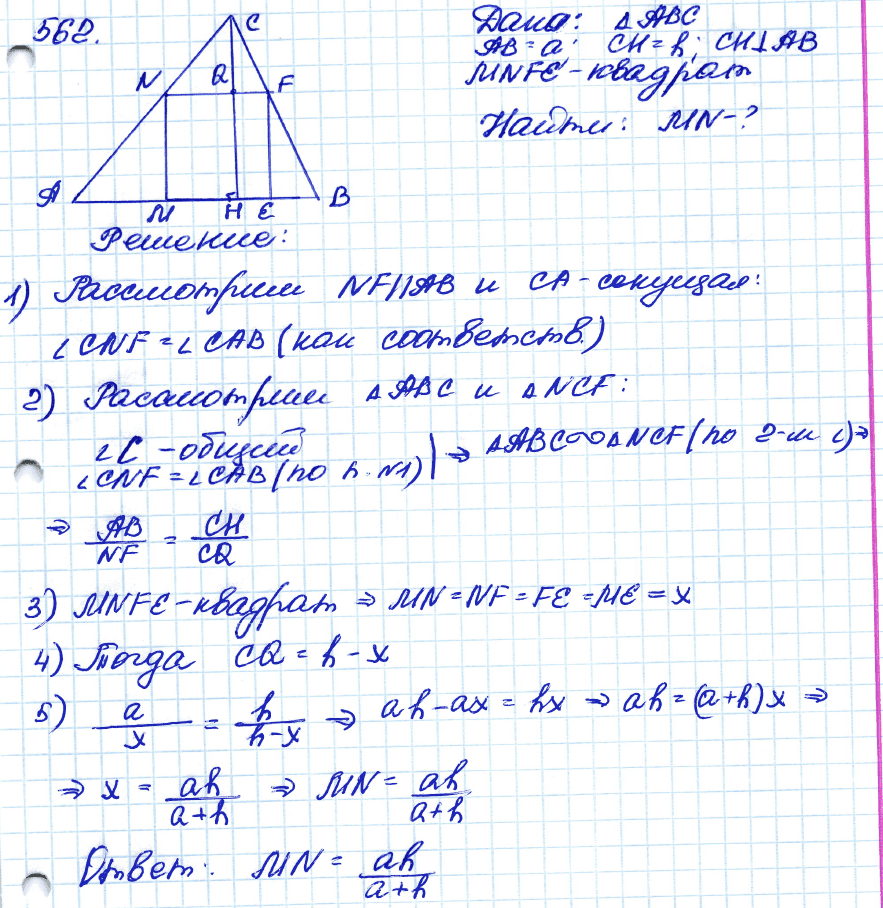 562.
C
N Q F
A M H E B
Дано: △ABC
AB = a; CH = h; CH⊥AB
MNFE - квадрат
Найти: MN - ?
Решение:
1) Рассмотрим NF||AB и CA - секущая:
∠CNF = ∠CAB (как соответств.)
2) Рассмотрим △ABC и △NCF:
∠C - общий
∠CNF = ∠CAB (по п. N1) | ⇒ △ABC ∾ △NCF (по 2-м ∠) ⇒
⇒ AB/NF = CH/CQ
3) MNFE - квадрат ⇒ MN = NF = FE = ME = x
4) Тогда CQ = h - x
5) a/x = h/(h-x) ⇒ ah - ax = hx ⇒ ah = (a+h)x ⇒
⇒ x = ah/(a+h) ⇒ MN = ah/(a+h)
Ответ: MN = ah/(a+h)